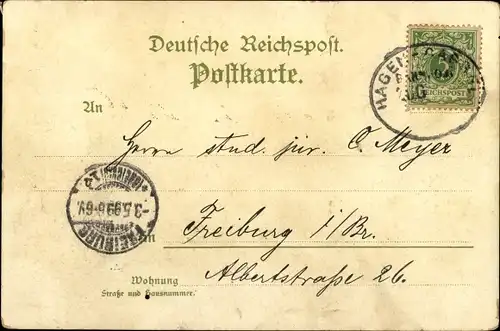 Deutsche Reichspost.
Postkarte.
5
REICHSPOST
HAGEN
An
Herrn stud. jur. C. Meyer
FREIBURG
-3.5.99.5-6V.
in
Freiburg i/Br.
Albertstraße 26.
Wohnung
Straße und Hausnummer.